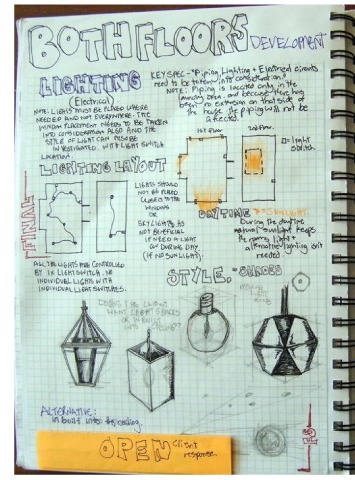 BOTH FLOORS DEVELOPMENT
LIGHTING
(Electrical)
KEY SPEC - "Piping, Lighting + Electrical circuits
need to be taken into consideration"
NOTE: Piping is located only in the
laundry area, and because there has
been no extension on that side of
the house the piping will not be
affected.
NOTE: LIGHTS MUST BE PLACED WHERE
NEEDED AND NOT EVERYWHERE. THE
WINDOW PLACEMENT NEEDS TO BE TAKEN
INTO CONSIDERATION ALSO AND THE
STYLE OF LIGHT CAN ALSO BE
INVESTIGATED, WITH LIGHT SWITCH
LOCATION.
1st Floor
2nd Floor
= light
switch
LIGHTING LAYOUT
FINAL
LIGHTS SHOULD
NOT BE PLACED
CLOSER TO THE
WINDOWS
OR
SKYLIGHTS AS
NOT BENEFICIAL
IF NEED A LIGHT
ON DURING DAY
(IF NO SUNLIGHT)
DAYTIME = SUNLIGHT
During the daytime
natural sunlight keeps
the rooms light +
alternative lighting isn't
needed
ALL THE LIGHTS ARE CONTROLLED
BY 1x LIGHTSWITCH, NO
INDIVIDUAL LIGHTS WITH
INDIVIDUAL LIGHTSWITCHES.
STYLE. - SHADES
DOES THE CLIENT
WANT LIGHT SHADES
OR IN BUILT
INTO CEILING?
ALTERNATIVE:
in built into the ceiling.
OPEN client
response.